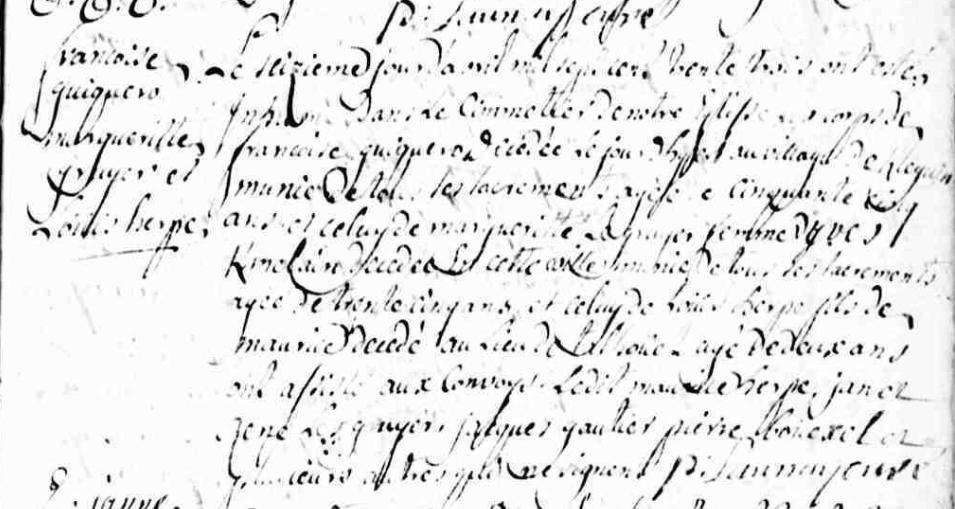 francoise
quiquero
margueritte
gruyer et
Louis herpe
Le seizieme jour d'avril mil sept cent trente trois ont estés
Inhumé dans le Cimmettier de notre Eglise les corps de
francoise quiquero decedée le jour d'hyer au village de
munie de tous les sacrements agée de Cinquante Cinq
ans et celuy de margueritte Le gruyer femme d'yves
decedée en cette ville munie de tous les sacrements
agee de trente cinq ans, et celuy de Louis herpe fils de
maurice decedé au lieu de agé de deux ans
ont assisté aux Convoys Ledit maurice herpe, jan et
René Le gruyer, jacques gautier pierre et
plusieurs autres qui ne signent